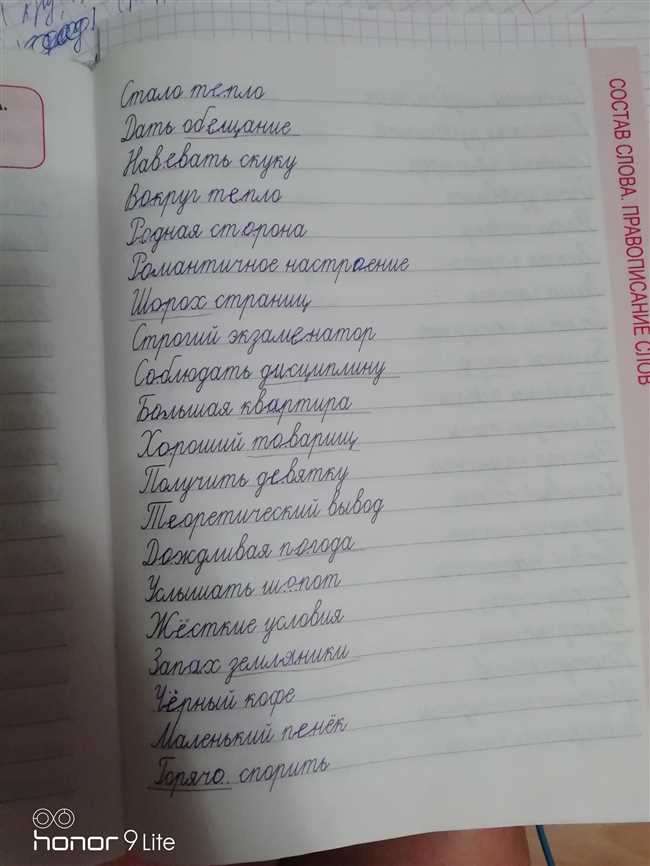 Стало тепло
Дать обещание
Навевать скуку
Вокруг тепло
Родная сторона
Романтичное настроение
Шорох страниц
Строгий экзаменатор
Соблюдать дисциплину
Большая квартира
Хороший товарищ
Получить девятку
Теоретический вывод
Дождливая погода
Услышать шопот
Жёсткие условия
Запах земляники
Чёрный кофе
Маленький пенёк
Горячо. спорить
СОСТАВ СЛОВА. ПРАВОПИСАНИЕ СЛОВ
honor 9 Lite